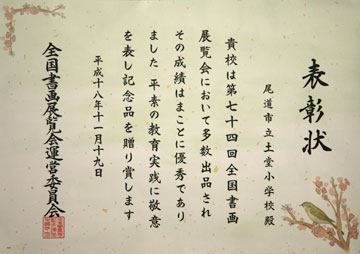 表彰状
尾道市立土堂小学校殿
貴校は第七十四回全国書画
展覧会において多数出品され
その成績はまことに優秀であり
ました 平素の教育実践に敬意
を表し記念品を贈り賞します
平成十八年十一月十九日
全国書画展覧会運営委員会